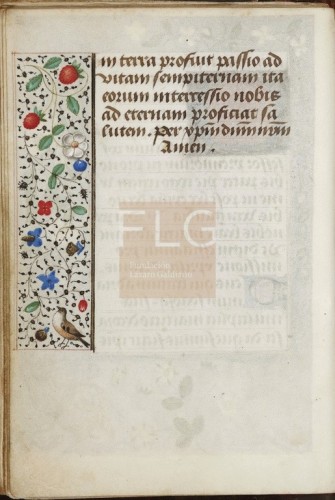 in terra profuit passio ad
vitam sempiternam ita
eorum intercessio nobis
ad eternam proficiat sa
lutem. Per xp̄m dnm nrm
Amen.
FLG
Fundación
Lázaro Galdiano